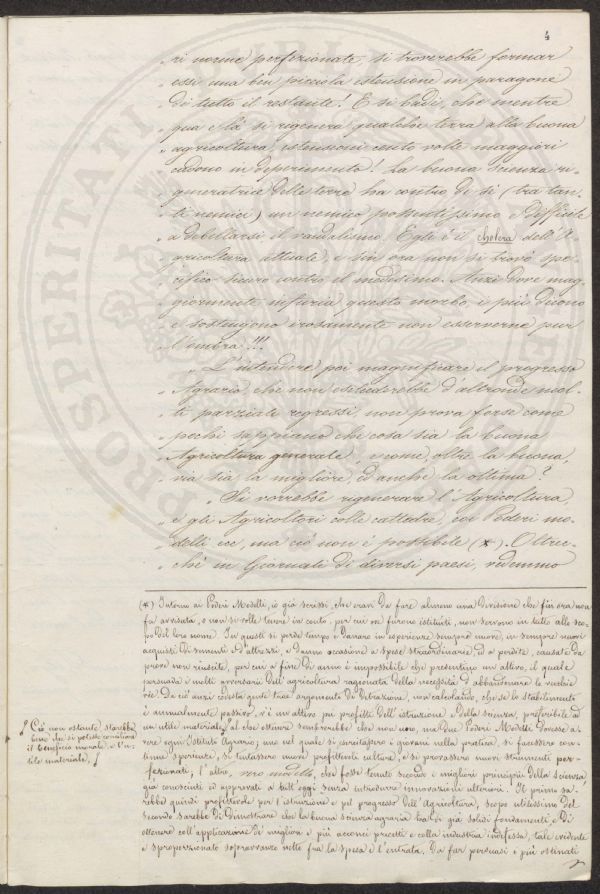 4
„ ri norme perfezionate, si troverebbe formar
„ essi una ben piccola estensione in paragone
„ di tutto il restante! E si badi, che mentre
„ qua e là si rigenera qualche terra alla buona
„ agricoltura, estensioni cento volte maggiori
„ cadono in deperimento! La buona scienza ri-
„ generatrice delle terre ha contro di sì (tra tan-
„ ti nemici) un nemico possentissimo e difficile
„ a debellarsi, il vandalismo. Egli è il cholera dell'A-
„ gricoltura attuale, e fin ora non si trovò spe-
„ cifico sicuro contro il medesimo. Anzi dove mag-
„ giormente infuria questo morbo, i più dicono
„ e sostengono irosamente non esservene pur
„ l'ombra!!!
„ L'intendere poi magnificare il progresso
„ Agrario, che non escluderebbe d'altronde mol-
„ ti parziali regressi, non prova forse come
„ pochi sappiano che cosa sia la buona
„ Agricoltura generale, e come, oltre la buona,
„ via sia la migliore, ed anche la ottima?
„ Si vorrebbe rigenerare l'Agricoltura,
„ e gli Agricoltori colle cattedre, coi Poderi mo-
„ delli ecc, ma ciò non è possibile (*). Oltre-
„ chè in Giornali di diversi paesi, vedemmo
(*) Intorno ai Poderi Modelli, io già scrissi, che eravi da fare almeno una divisione che fin ora non
fu avvisata, o non si volle tenere in conto, per cui ove furono istituiti, non servono in tutto allo sco-
po del loro nome. In questi si perde tempo e danaro in esperienze sempre nuove, in sempre nuovi
acquisti di sementi e d'attrezzi, e danno occasione a spese straordinarie, ed a perdite, causate da
prove non riuscite, per cui a fine di anno è impossibile che presentino un attivo, il quale
persuada i molti avversarii dell'agricoltura ragionata della necessità d'abbandonare le vecchie
vie. Da ciò anzi codesta gente trae argomento di detrazione, non calcolando, che se lo stabilimento
è annualmente passivo, v'è un attivo pei profitti dell'istruzione e della scienza, preferibile ad
un utile materiale / al che ottenere sembrerebbe che non uno, ma due Poderi Modelli dovesse a-
vere ogni Istituto Agrario; uno nel quale si esercitassero i giovani nella pratica, si facessero con-
tinue sperienze, si tentassero nuove profittevoli colture, e si provassero nuovi strumenti per-
fezionati, l'altro, vero modello, che fosse tenuto secondo i migliori principii della scienza
già conosciuti ed approvati a tutt'oggi senza introdurre innovazioni ulteriori. Il primo sa-
rebbe quindi profittevole per l'istruzione e pel progresso dell'Agricoltura, scopo utilissimo del
secondo sarebbe di dimostrare che la buona scienza agraria ha di già solidi fondamenti, e di
ottenere coll'applicazione de' migliori e più acconci precetti e colla industria indefessa, tale evidente
e sproporzionato sopravvanzo netto fra la spesa e l'entrata, da far persuasi i più ostinati
/ Ciò non ostante starebbe
bene che si potesse conciliare
il beneficio morale, e l'u-
tile materiale, /
PROSPERITATI